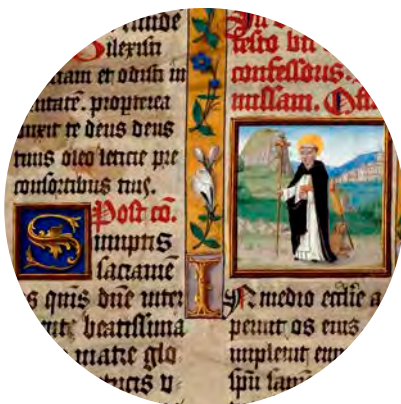 Dilexisti
itiam et odisti in
quitatē. propterea
unxit te deus deus
tuus oleo leticie pre
consortibus tuis.
Post cō.
Sumptis
sacrame
s quis dn̄e inter
beatissima
matre glo
festo bti
confessoris.
missam. Offi
In medio ecclīe a
peruit os eius
impleuit eum
spū